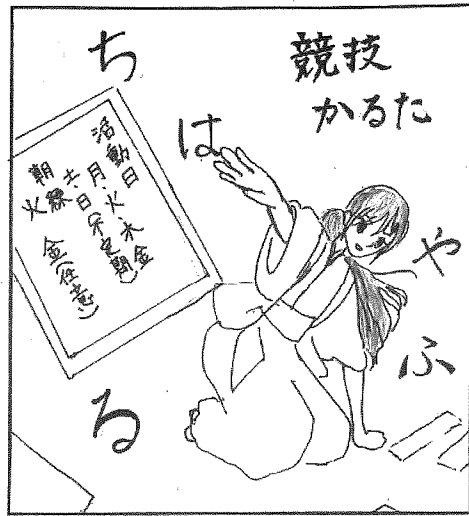 競技
かるた
ち
は
や
ふ
る
活動日
月・火・木金
土・日(不定期)
朝練
火 金(任意)